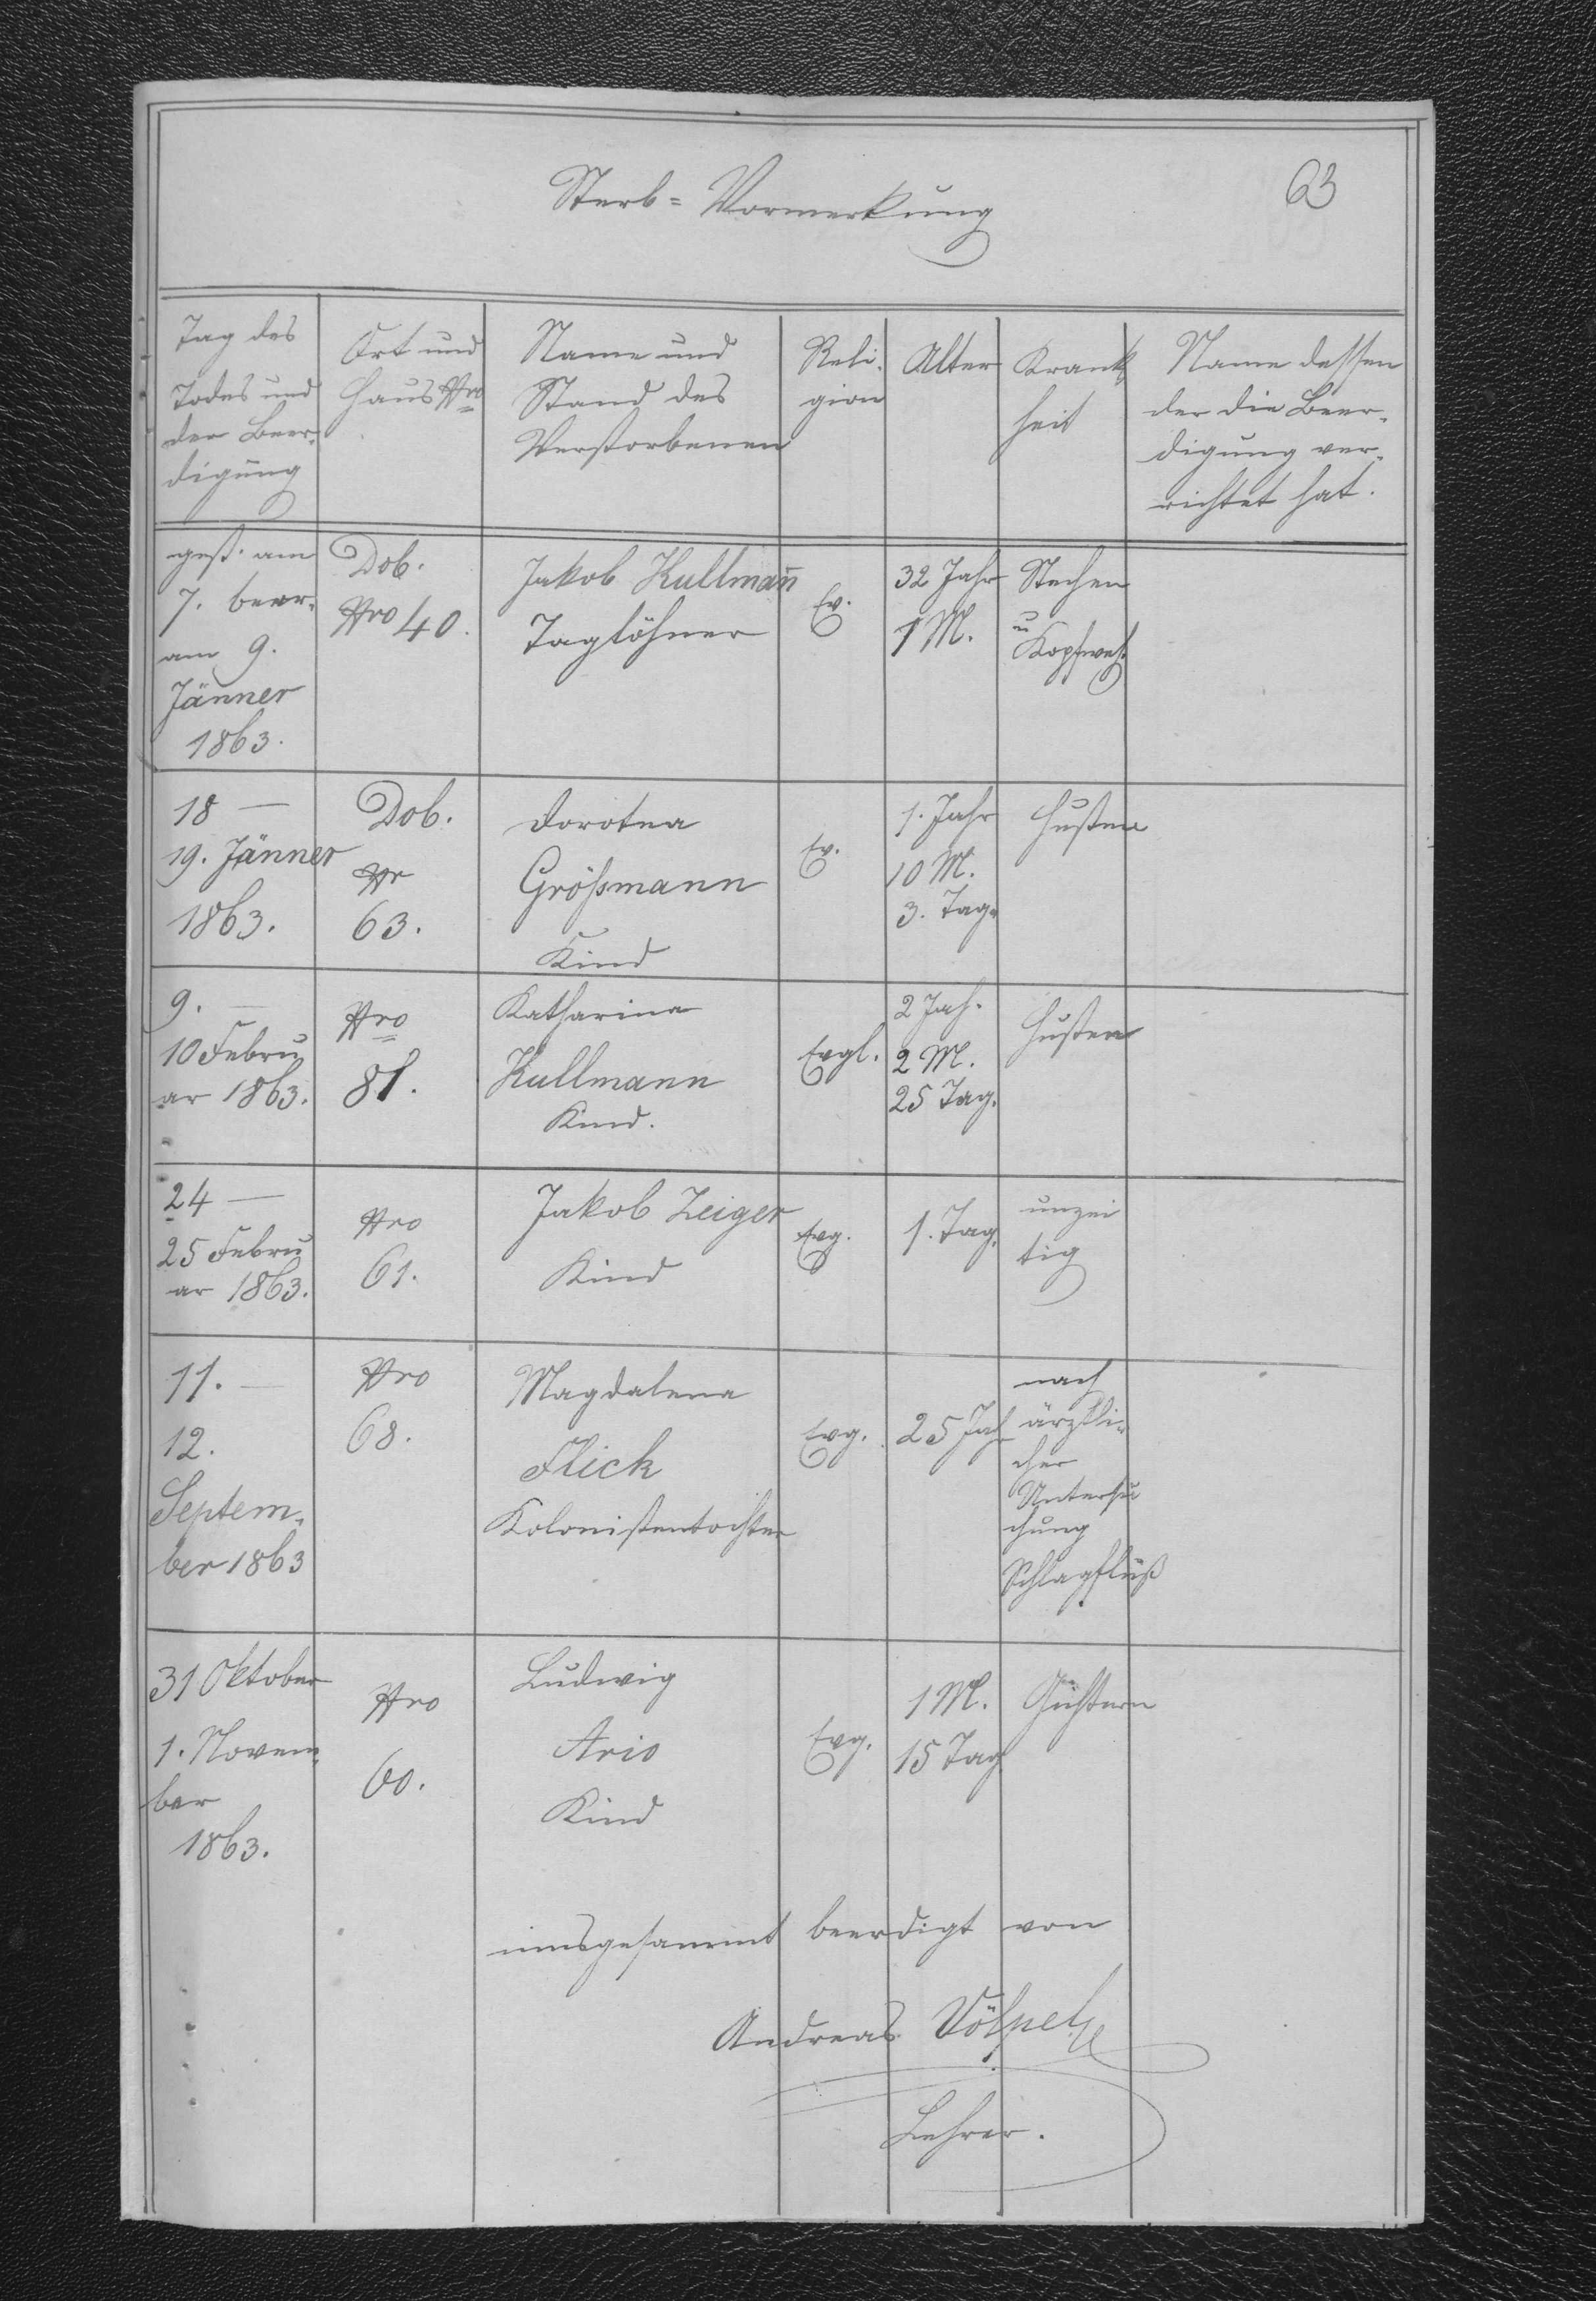 63
Sterb=Vormerkung
Tag des
Todes und
der Beer-
digung
Ort und
Haus Nro
Name und
Stand des
Verstorbenen
Reli-
gion
Alter
Krank-
heit
Name dessen
der die Beer-
digung ver-
richtet hat.
gest. am
7. beer.
am 9.
Jänner
1863.
Dob.
Nro 40.
Jakob Kullmañ
Taglöhner
Ev.
32 Jahr
1 M.
Stechen
u
Kopfweh.
18 —
19. Jänner
1863.
Dob.
Nr
63.
Dorotea
Größmann
Kind
Ev.
1. Jahr
10 M.
3. Tag.
Husten
9. —
10 Febru
ar 1863.
Nro
81.
Katharina
Kullmann
Kind.
Evgl.
2 Jah.
2 M.
25 Tag.
Husten
24 —
25 Febru
ar 1863.
Nro
61.
Jakob Zeiger
Kind
Evg.
1. Tag.
unzei
tig
11. —
12.
Septem-
ber 1863
Nro
68.
Magdalena
Flick
Kolonistentochter
Evg.
25 Jah
nach
ärztli-
cher
Untersu
chung
Schlagfluß
31 Oktober
1. Novem-
ber
1863.
Nro
60.
Ludwig
Ario
Kind
Evg.
1 M.
15 Tag
insgesammt beerdigt von
Andreas Völpel
Lehrer.